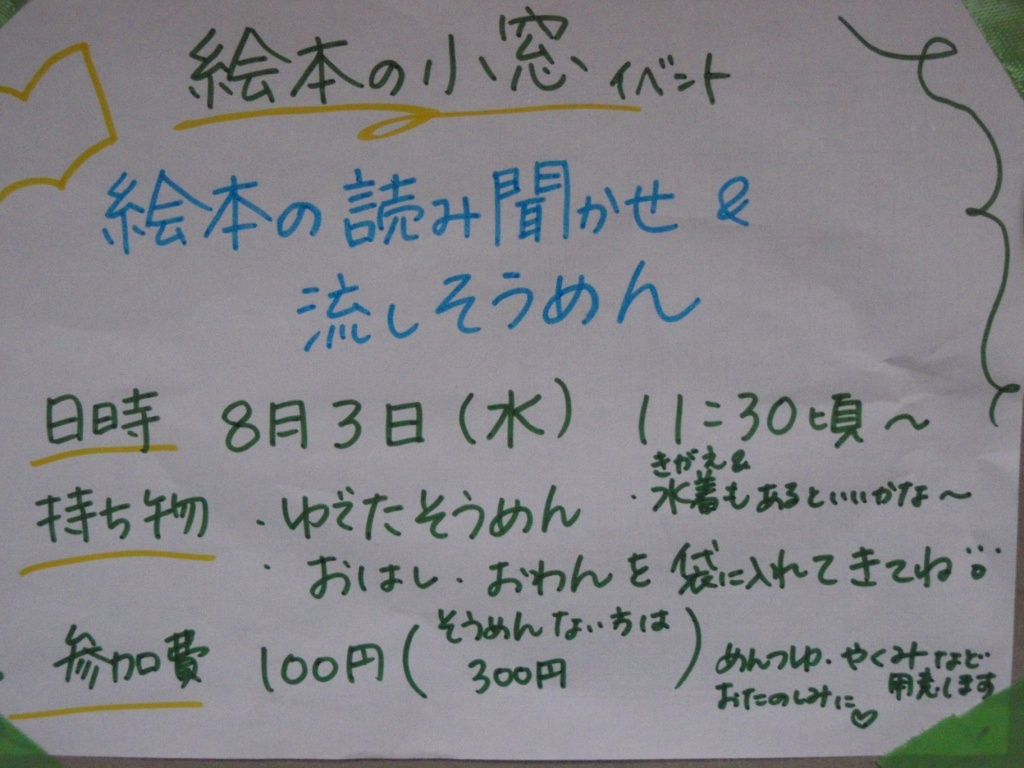 絵本の小窓 イベント
絵本の読み聞かせ &
流しそうめん
日時 8月3日(水) 11:30頃～
持ち物 ・ゆでたそうめん
きがえ&
・水着もあるといいかな～
・おはし・おわんを袋に入れてきてね
参加費 100円(そうめんない方は
300円)
めんつゆ・やくみなど
用意します
おたのしみに♡